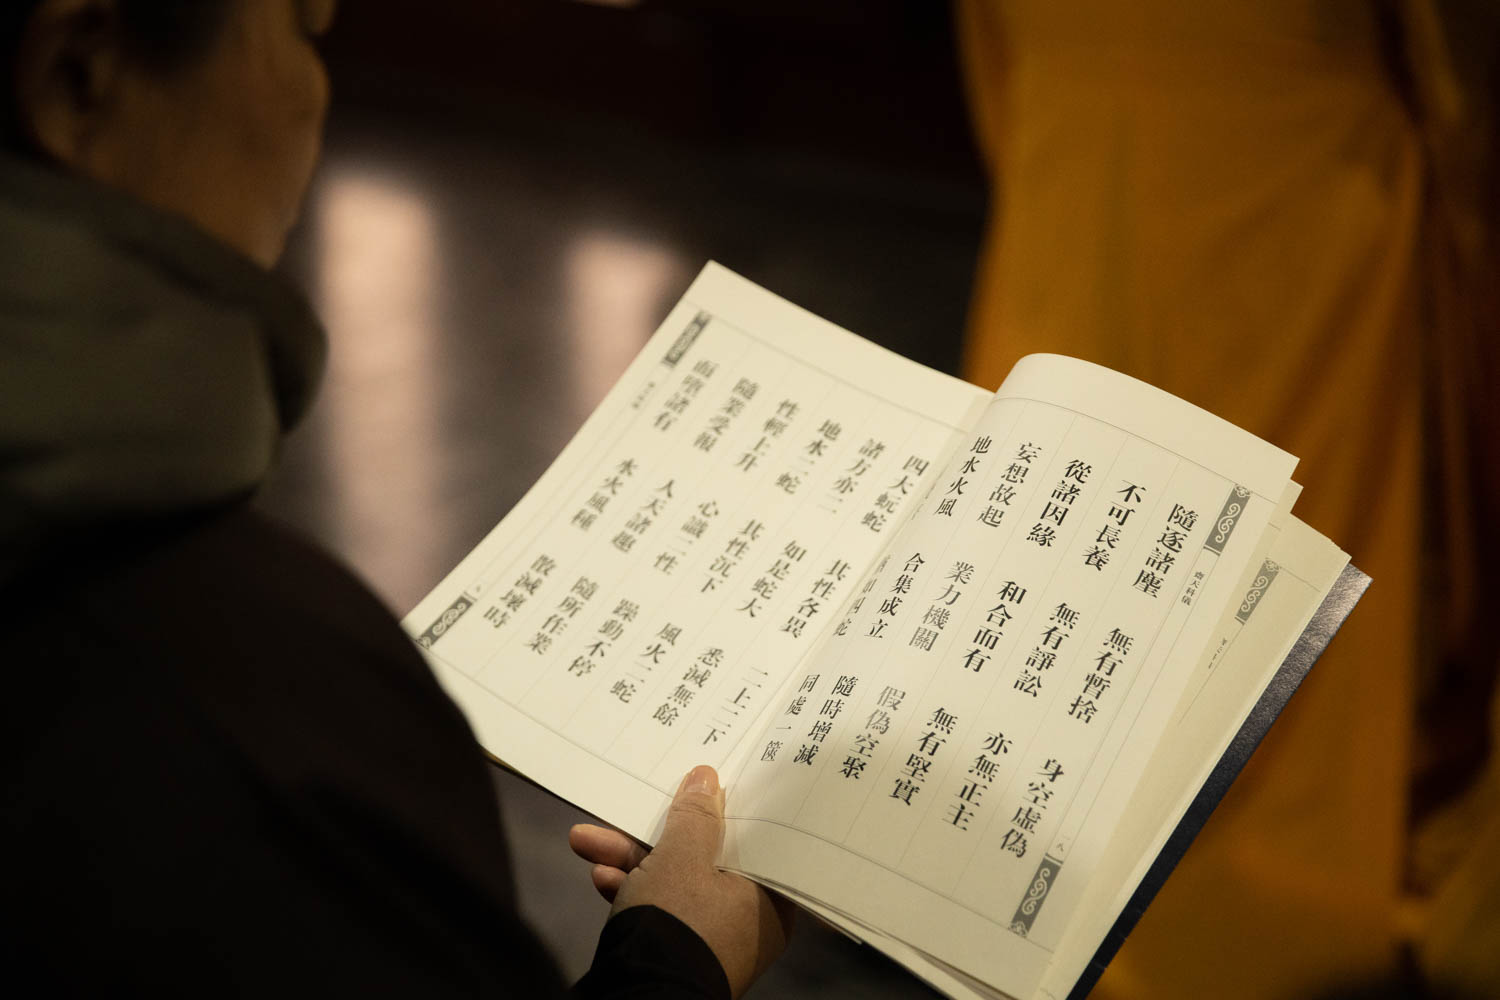 齋天科儀
一八
隨逐諸塵　無有暫捨　身空虛偽
不可長養　無有諍訟　亦無正主
從諸因緣　和合而有　無有堅實
妄想故起　業力機關　假偽空聚
地水火風　合集成立　隨時增減
四蛇　同處一篋
四大蚖蛇　其性各異　二上二下
諸方亦二　如是蛇大　悉滅無餘
地水二蛇　其性沉下　風火二蛇
性輕上升　心識二性　躁動不停
隨業受報　人天諸趣　隨所作業
墮諸有　水火風種　散滅壞時